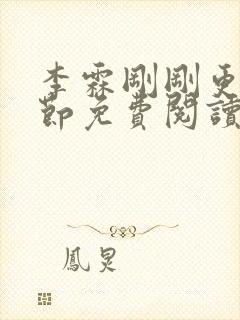 李霖剛剛更
節免費閱讀
鳳炅